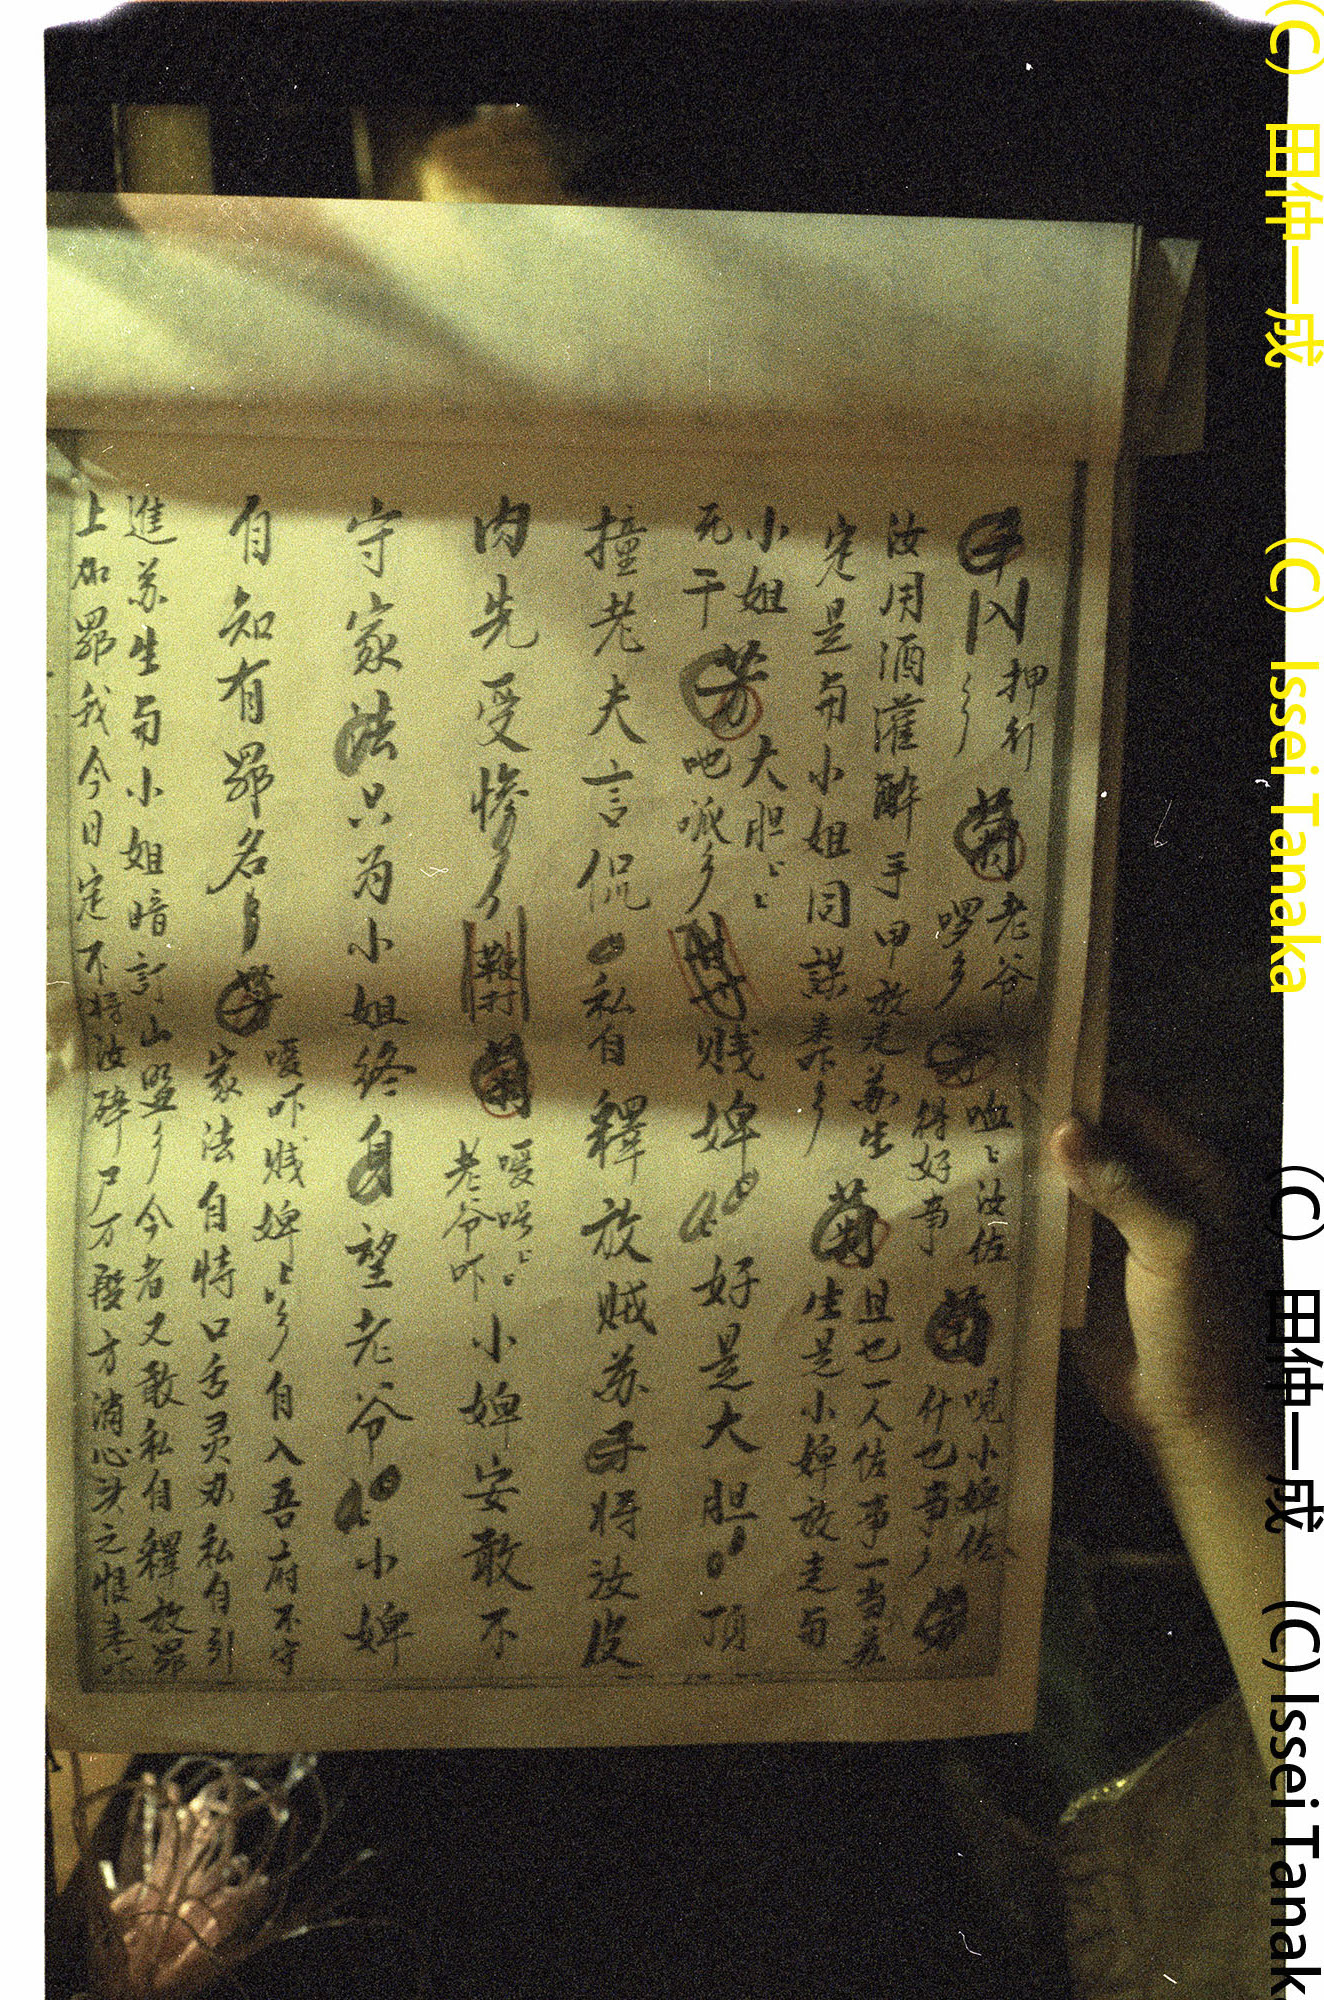 入 押行 菊 老爷 啰 汝佐 得好事 菊 小婢佐 什乜事 芳
汝用酒灌醉手甲放走苏生 菊 且乜一人佐事一当
定是与小姐同謀 来吓 生是小婢放走与
小姐 芳 大胆
死干 吔派 打 贱婢 好是大胆 頂
撞老夫言侃 私自釋放贼苏 将汝皮
肉先受惨 鞭打 菊 嗳 老爷吓 小婢安敢不
守家法只为小姐终身望老爷 小婢
自知有罪名 芳 嗳吓贱婢 自入吾府不守
家法自恃口舌灵 私自引
進苏生与小姐暗訂山盟 今者又敢私自釋放罪
上加罪我今日定不将汝碎尸万段方消心头之恨来
(C) 田仲一成 (C) Issei Tanaka (C) 田仲一成 (C) Issei Tanak